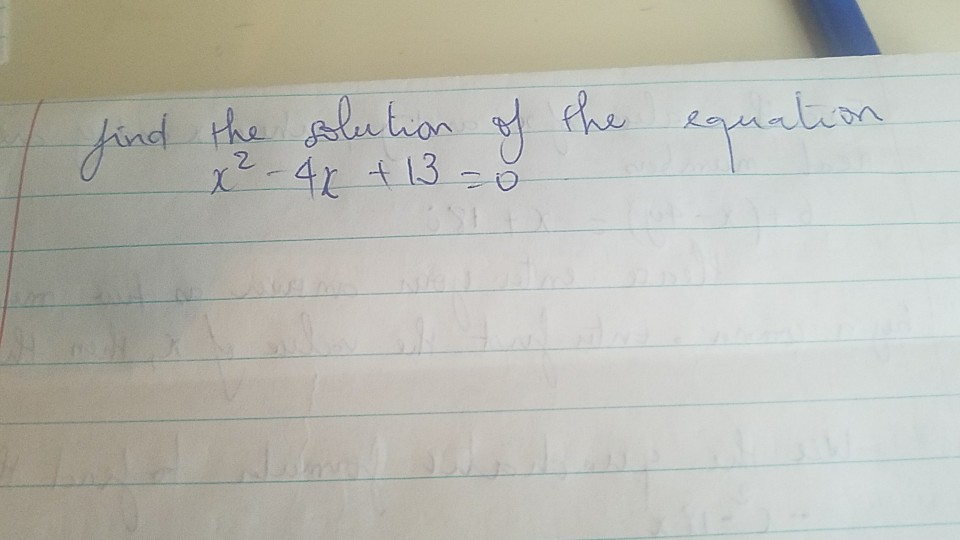 find the solution of the equation
x² - 4x + 13 = 0